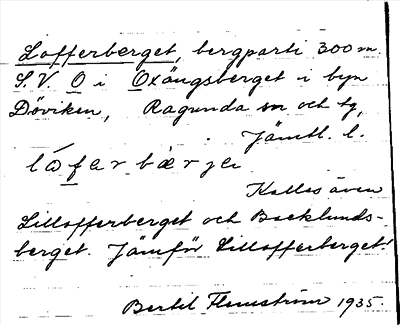 Lofferberget, bergparti 300 m.
S.V. O i Oxängsberget i byn
Döviken, Ragunda sn och tg,
Jämtl. l.
låfarbärje
Kallas även
Lillofferberget och Backlunds-
berget. Jämför Lillofferberget!
Bertil Flemström 1935.